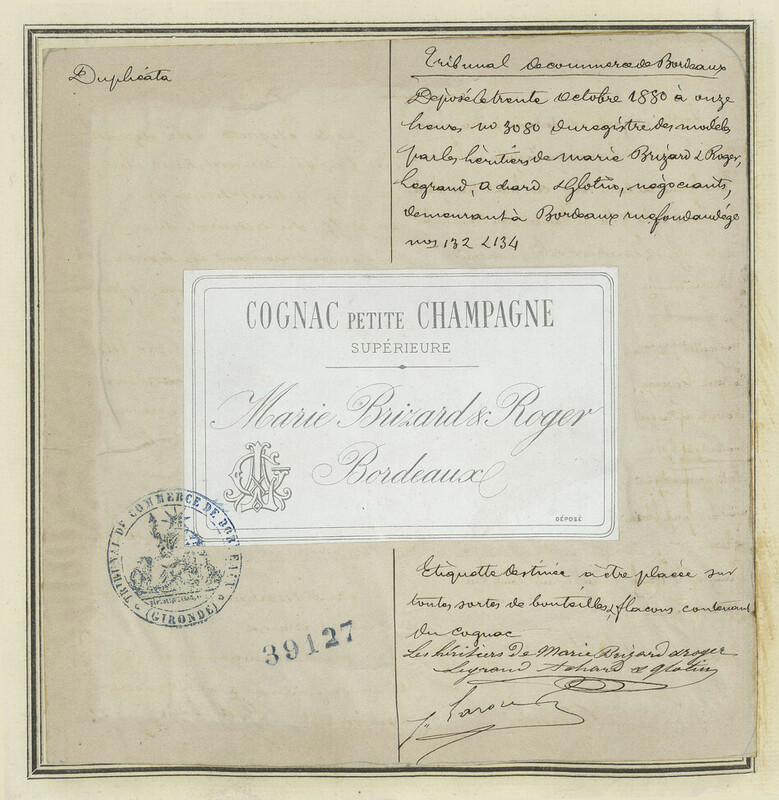 Duplicata
Tribunal de commerce de Bordeaux
Déposé le trente octobre 1880 à onze
heures no 3080 du registre des models
par les héritiers de marie Brizard & Roger,
Legrand, achard & Glotin, négociants,
demeurant à Bordeaux rue fondaudége
nos 132 & 134
COGNAC PETITE CHAMPAGNE
SUPÉRIEURE
Marie Brizard & Roger
Bordeaux
DÉPOSÉ
TRIBUNAL DE COMMERCE DE BORDEAUX
(GIRONDE)
39127
Etiquette destinée à être placée sur
toutes sortes de bouteilles & flacons contenant
du cognac
Les héritiers de Marie Brizard & roger
Legrand Achard & glotin